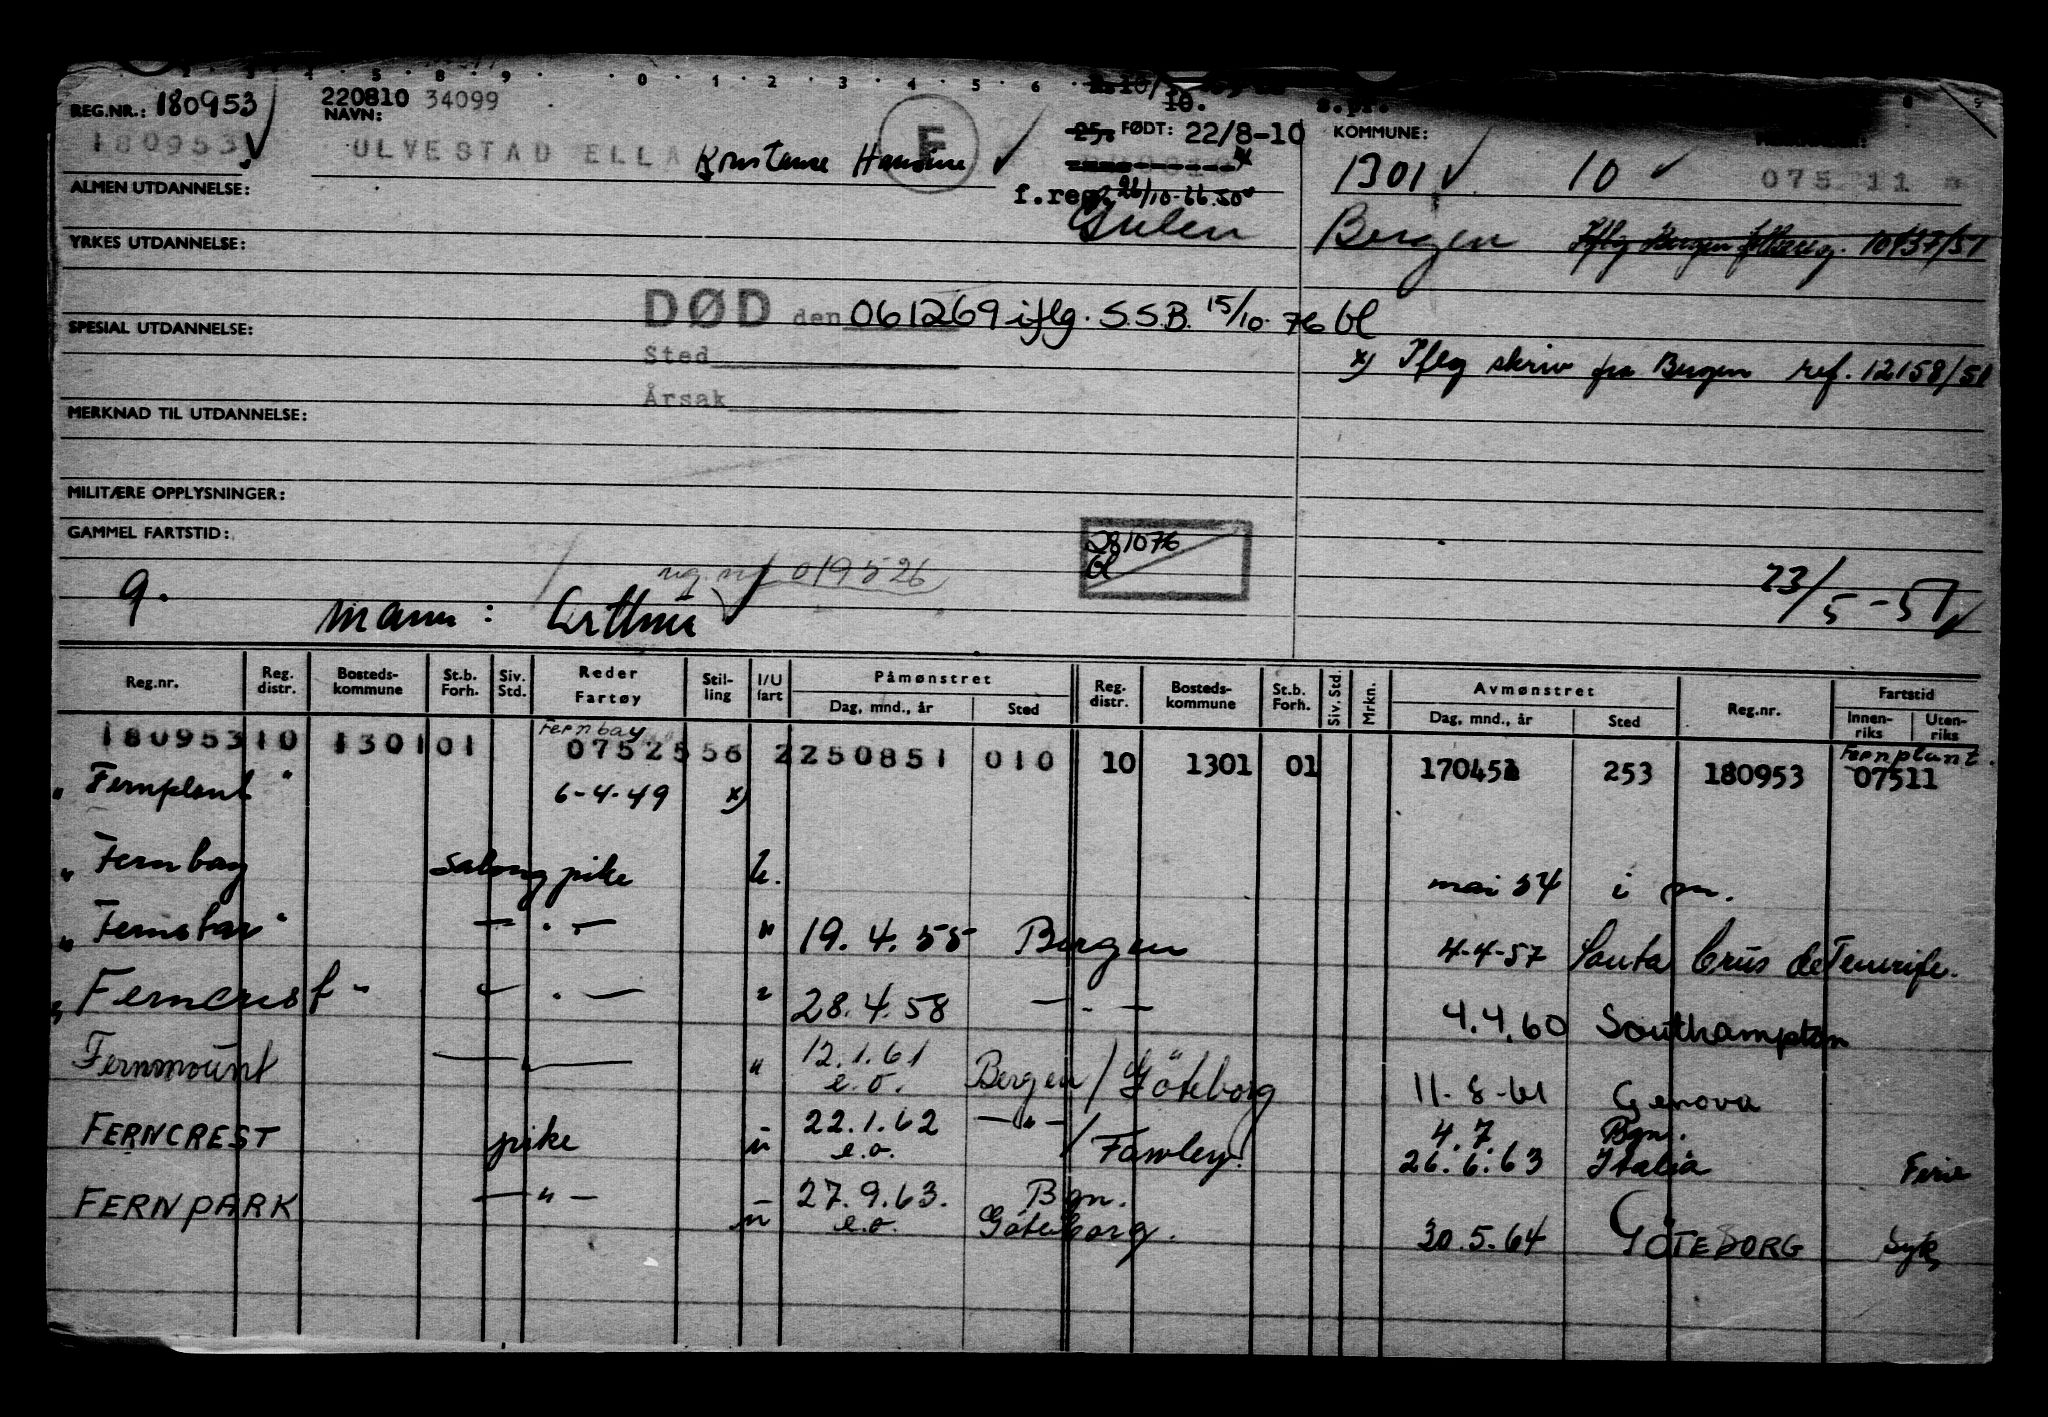 REG.NR.: 180953
220810 34099
NAVN:
180953
ULVESTAD ELLA Konstanse Hansine
F
10.
25. FØDT: 22/8-10
f.reg. 26/10-66.50
Gulen
KOMMUNE:
1301 10 075 11
Bergen Iflg Bergen folkereg. 10937/51
ALMEN UTDANNELSE:
YRKES UTDANNELSE:
DØD den 061269 iflg. S.S.B. 15/10-76 bl
SPESIAL UTDANNELSE:
Sted
x) Iflg skriv fra Bergen ref. 12158/51
Årsak
MERKNAD TIL UTDANNELSE:
MILITÆRE OPPLYSNINGER:
GAMMEL FARTSTID:
281076
bl
reg. nr. 019526
9. Mann: Arthur
23/5-51
Reg.nr. Reg. distr. Bosteds-kommune St.b. Forh. Siv. Std. Reder Fartøy Stil-ling I/U fart Påmønstret Dag, mnd., år Sted Reg. distr. Bosteds-kommune St.b. Forh. Siv. Std. Mrkn. Avmønstret Dag, mnd., år Sted Reg.nr. Fartstid Innen-riks Uten-riks
Fernbay Fernplant.
180953 10 1301 01 0752556 2 250851 010 10 1301 01 170452 253 180953 07511
" Fernplant " 6-4-49 x)
" Fernbay Salongpike U. mai 54 i pm.
" Fernstar " — . — " 19.4.55 Bergen 4-4-57 Santa Crus de Tenerife.
" Ferncrest " — . — " 28.4.58 — . — 4.4.60 Southampton
Fernmount — " — " 12.1.61 e.o. Bergen / Göteborg 11-8-61 Genova
FERNCREST pike u 22.1.62 e.o. — " — / Fawley. 4.7 Bgn.
26.6.63 Italia Ferie
FERNPARK — " — u 27.9.63. e.o. Bgn. Göteborg. 30.5.64 GÖTEBORG Syk